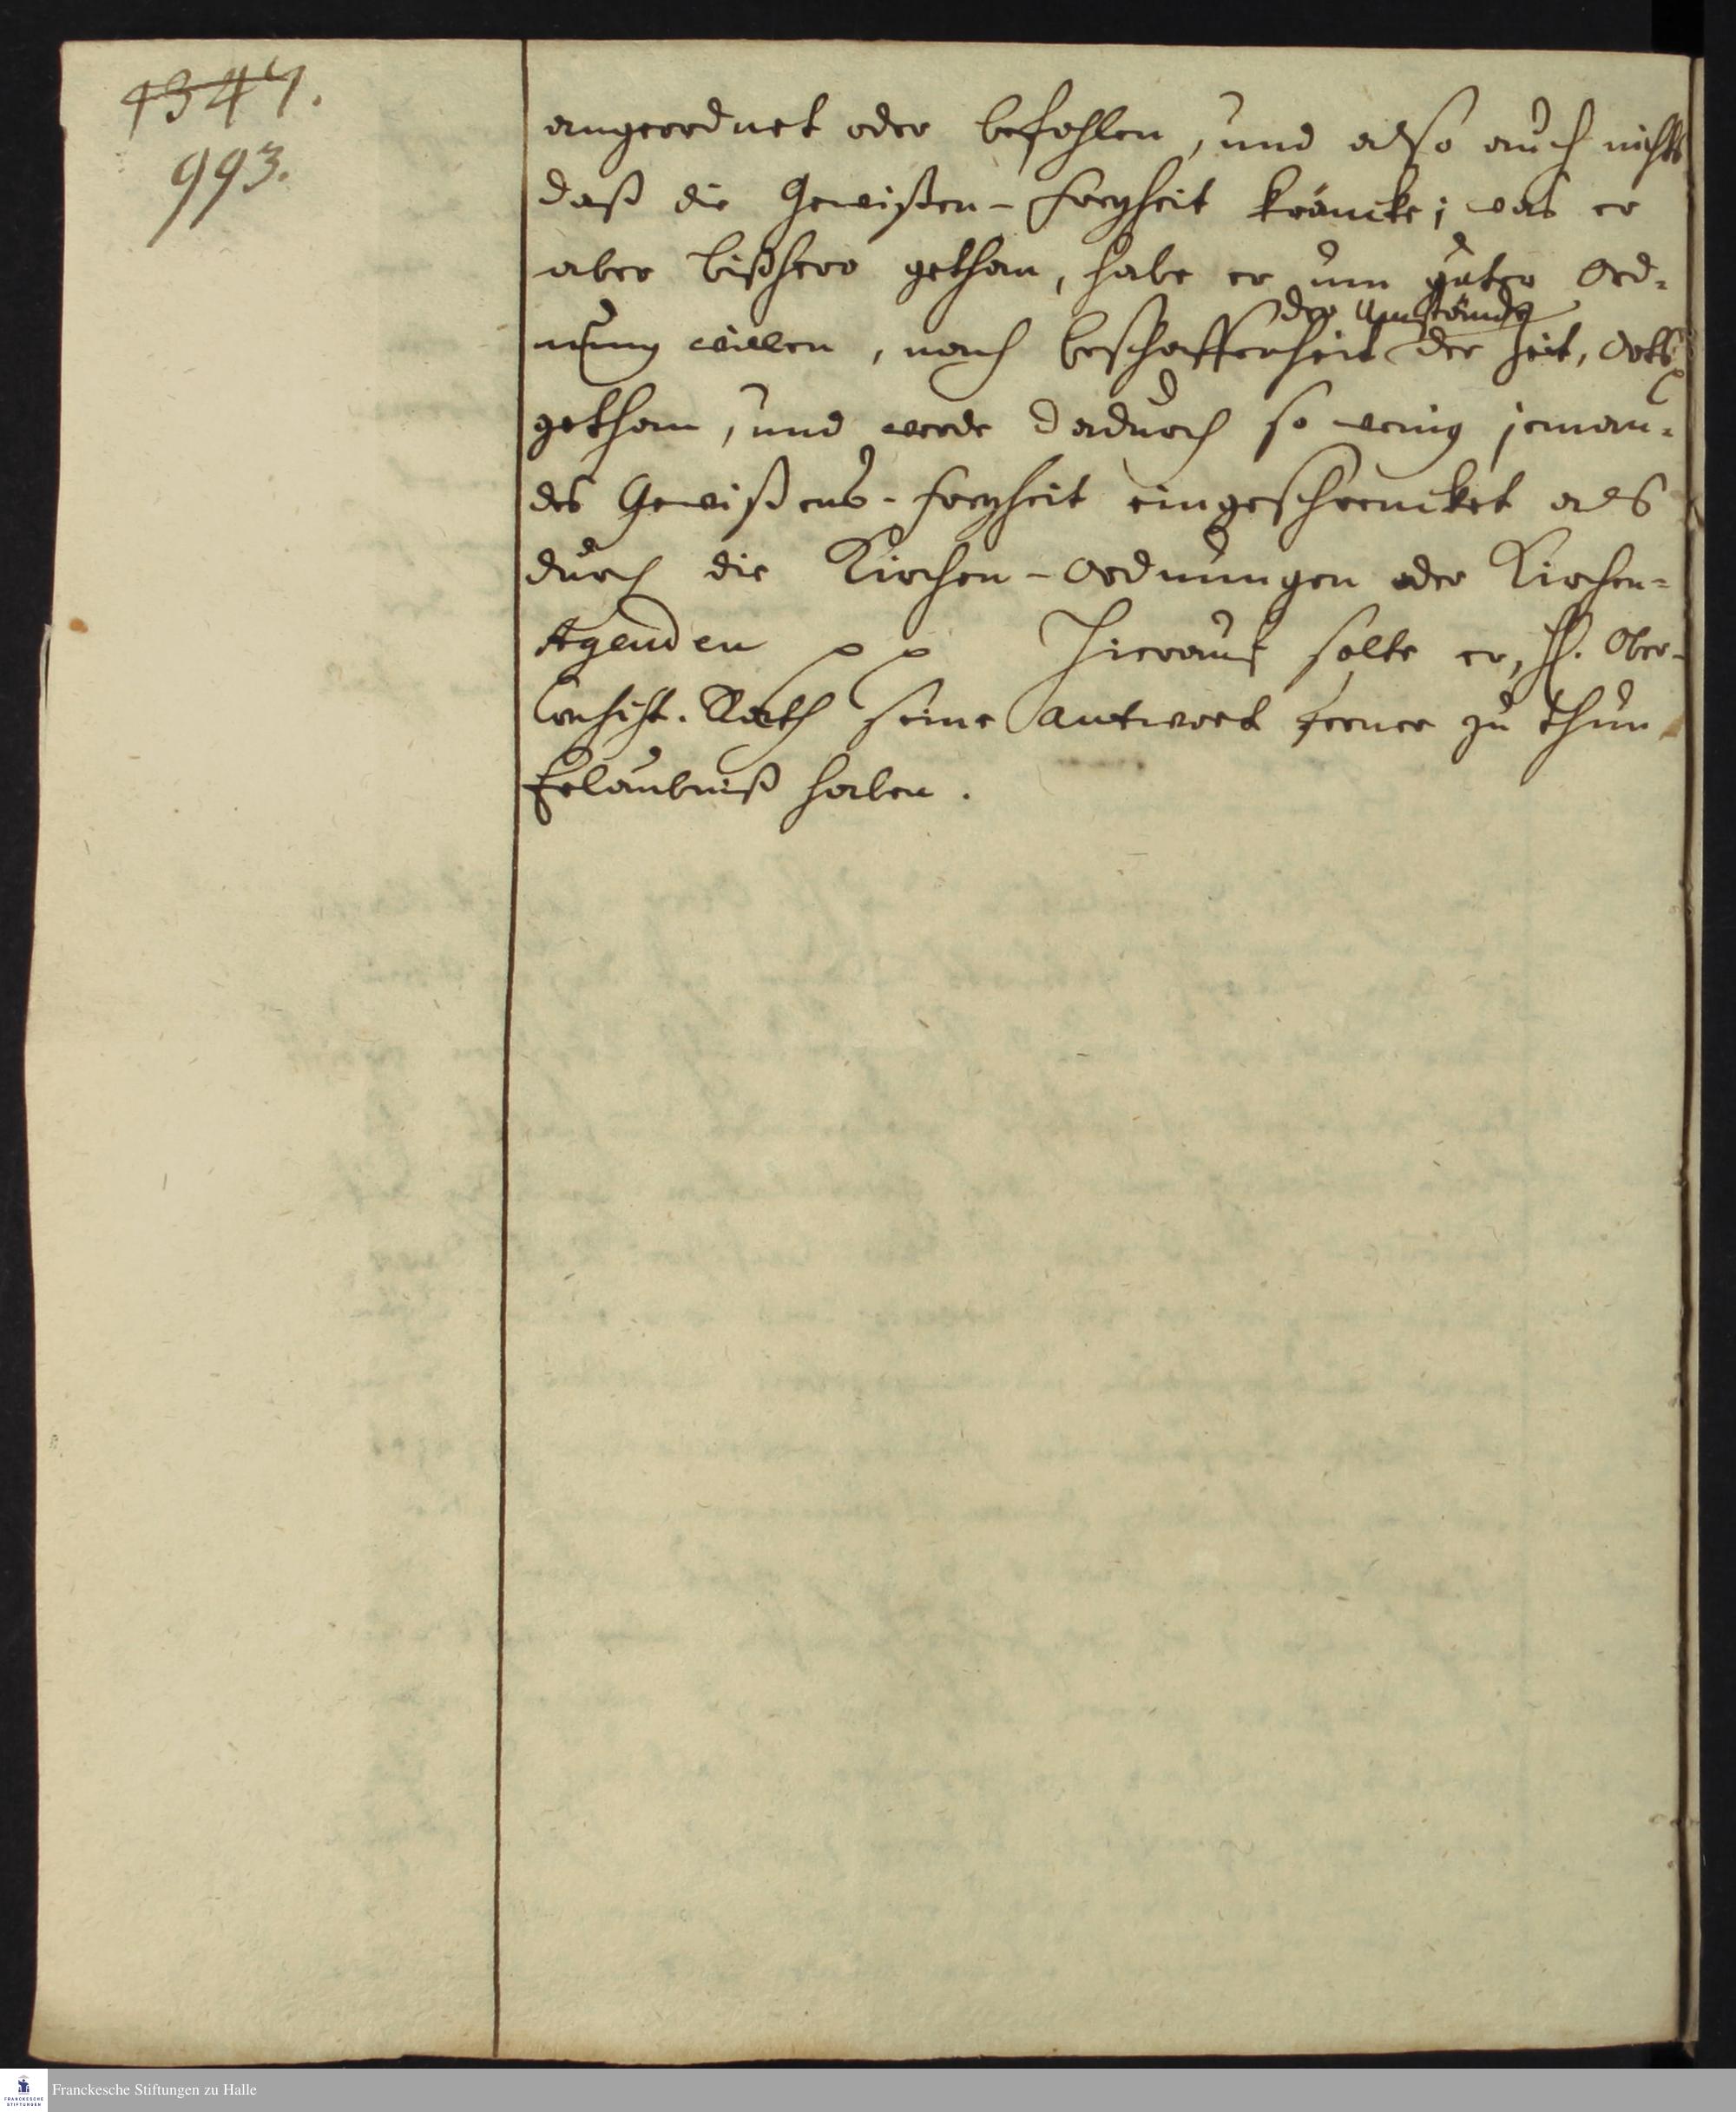 1344.
993.
angeordnet oder befohlen, und also auch nichts
daß die Gewißen-freyheit kräncke; was er
aber bißhero gethan, habe er um guter Ord-
der Umstände
nung willen, nach beschaffenheit der Zeit, Orts
gethan, und werde dadurch so wenig jeman-
des Gewißens-freyheit eingeschrencket als
durch die Kirchen-Ordnungen oder Kirchen-
Agenden pp Hierauf solte er, H. Ober-
Consist. Rath seine Antwort ferner zu thun
Erlaubniß haben.
Franckesche Stiftungen zu Halle
FRANCKESCHE
STIFTUNGEN